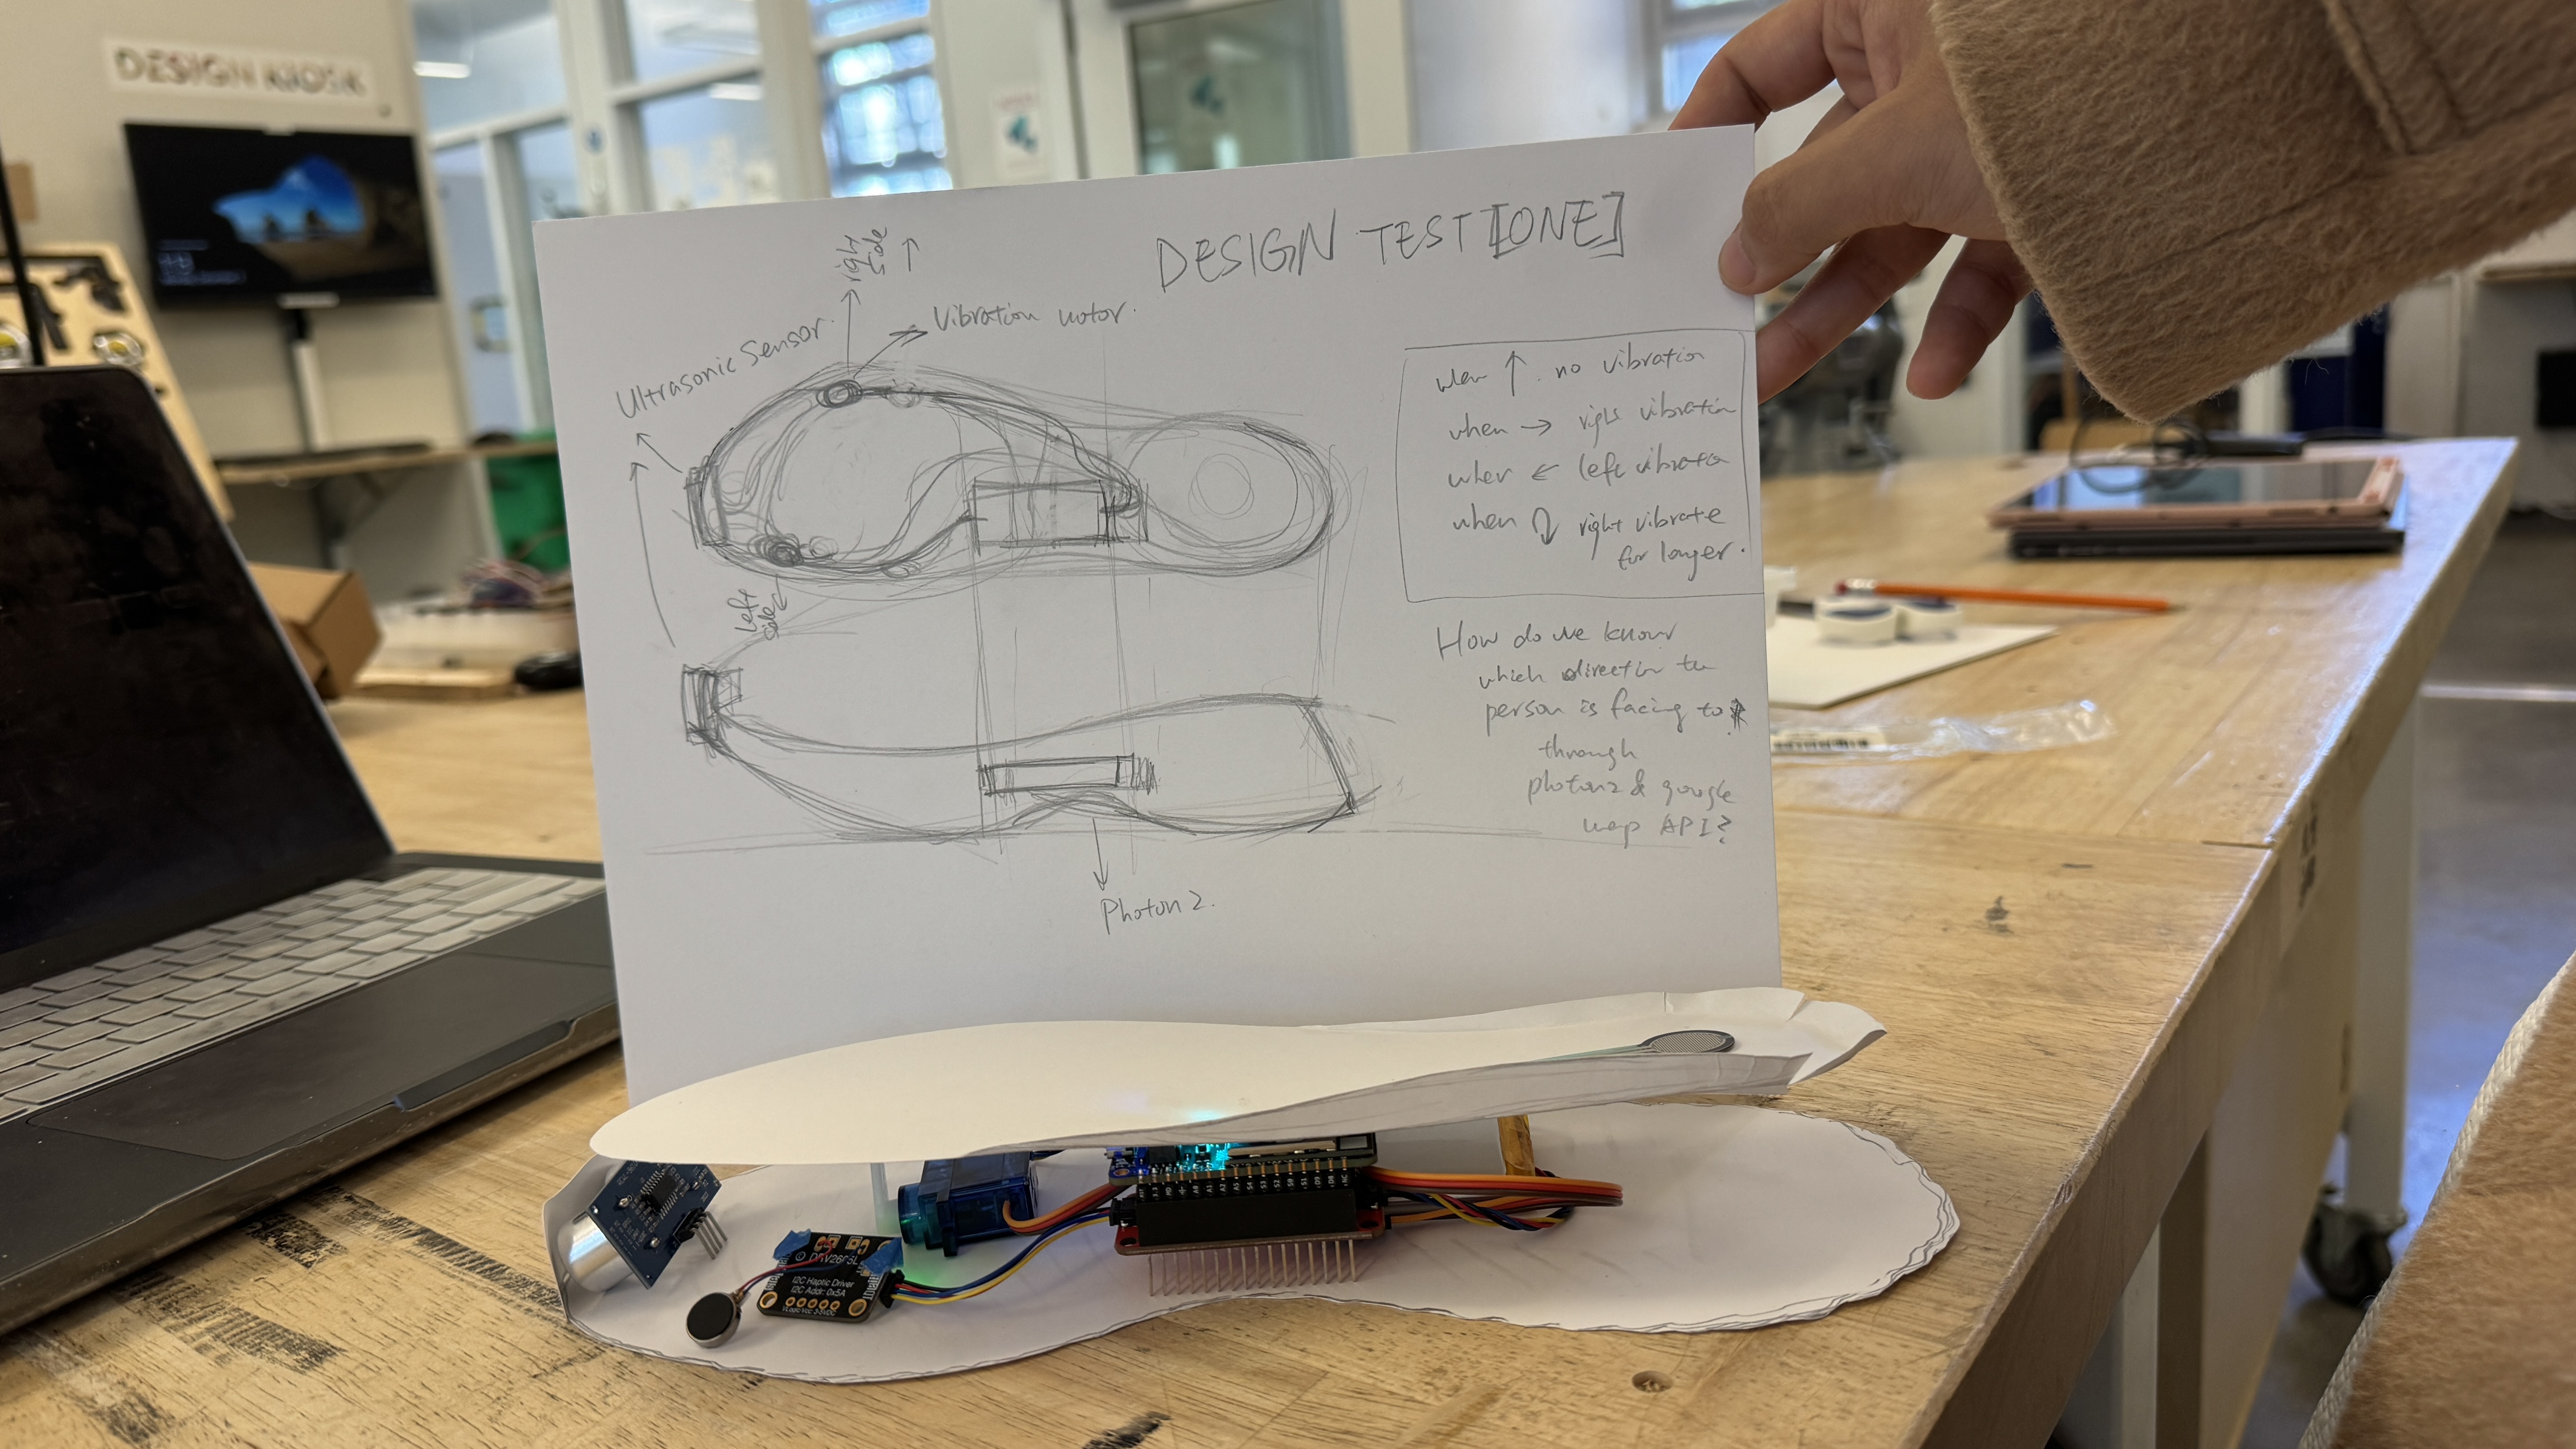 DESIGN KIOSK
DESIGN TEST [ONE]
right
side ↑
Vibration motor.
Ultrasonic Sensor
left
side
when ↑ no vibration
when → right vibration
when ← left vibration
when right vibrate
for longer.
How do we know
which direction the
person is facing to
through
photon2 & google
map API?
Photon 2.
I2C Haptic Driver
I2C Addr: 0x5A